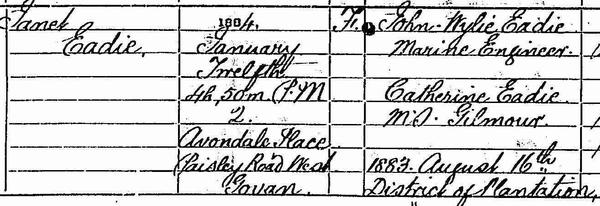 Janet
Eadie.
1884.
January
Twelfth
4h, 50m. P.M
2.
Avondale Place
Paisley Road West
Govan.
F.
John Wylie Eadie
Marine Engineer.
Catherine Eadie
M.S. Gilmour.
1883. August 16th
District of Plantation,